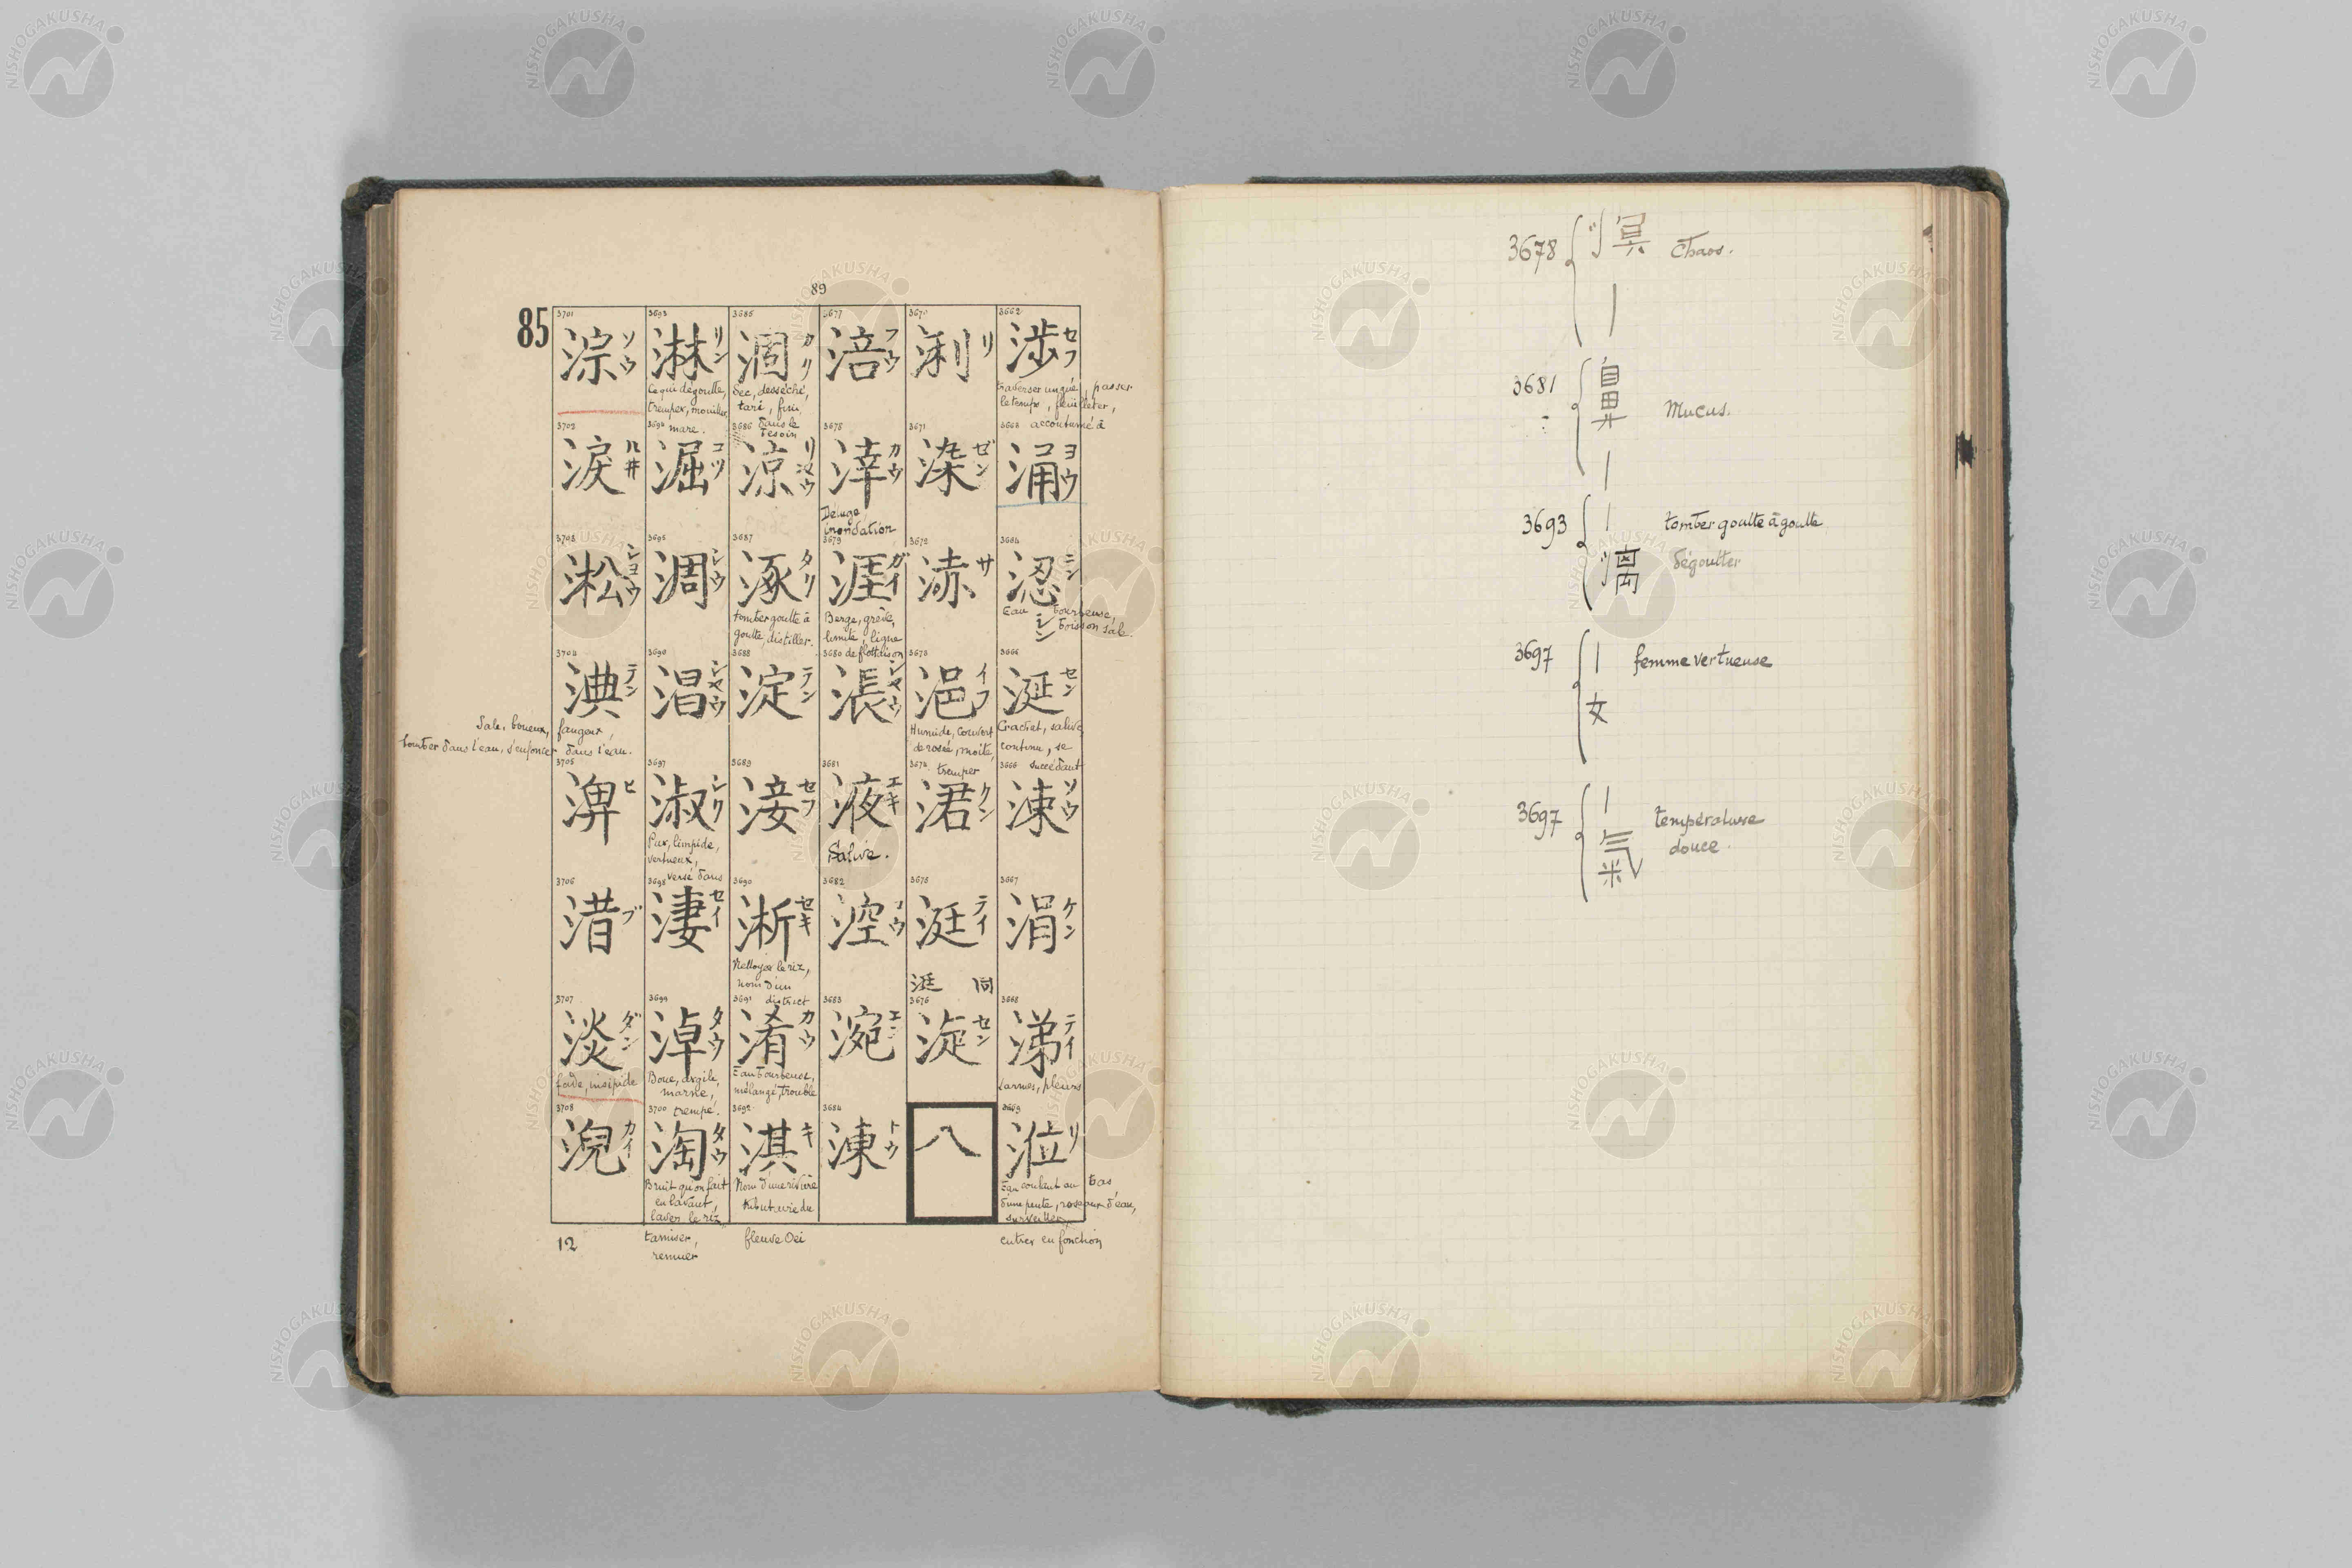 89
85
3662
涉 セフ
traverser un gué, passer
le temps, feuilleter,
accoutumé à
3663
涌 ヨウ
3664
涊 テン
Eau bourbeuse,
boisson sale.
涎 セン
Crachat, salive,
continu, se
succédant
3666
涑 ソウ
3667
涓 ケン
3668
涕 テイ
Larmes, pleurs
3669
涖 リ
Eau coulant au bas
d'une pente, roseaux d'eau,
surveiller,
entrer en fonction
3670
浰 リ
3671
染 ゼン
3672
浾 サ
3673
浥 イフ
Humide, couvert
de rosée, moite,
tremper
3674
涒 クン
3675
涏 テイ
涎 同
3676
淀 セン
八
3677
涪 フウ
3678
涬 カウ
Déluge,
inondation
3679
涯 ガイ
Berge, grève,
limite, ligne
de flottaison
3680
涱 シヤウ
3681
液 エキ
Salive.
3682
涳 コウ
3683
涴 エン
3684
涷 トウ
3685
涸 カク
Sec, desséché,
tari, fini,
dans le
besoin
3686
涼 リヤウ
3687
涿 タク
tomber goutte à
goutte, distiller.
3688
淀 テン
3689
淁 セフ
3690
淅 セキ
Nettoyer le riz,
nom d'un
district
3691
淆 カウ
Eau bourbeuse,
mélangé, trouble
3692
淇 キ
Nom d'une rivière
tributaire du
fleuve Oei
3693
淋 リン
Ce qui dégoutte,
tremper, mouiller,
mare.
3694
淈 コツ
3695
淍 シウ
3696
淐 シヤウ
3697
淑 シク
Pur, limpide,
vertueux,
versé dans
3698
淒 セイ
3699
淖 タウ
Boue, argile,
marne,
trempé.
3700
淘 タウ
Bruit qu'on fait
en lavant,
laver le riz,
tamiser,
remuer
3701
淙 ソウ
3702
淚 ルヰ
3703
淞 シヨウ
3704
淟 テン
Sale, boueux, fangeux,
tomber dans l'eau, s'enfoncer dans l'eau.
3705
淠 ヒ
3706
㳻 ブ
3707
淡 ダン
fade, insipide
3708
淣 カイ
12
3678 { 溟 Chaos.
|
3681 { 鼻 Mucus.
|
3693 { | tomber goutte à goutte
漓 dégoutter
3697 { | femme vertueuse
女
3697 { | température
氣 douce